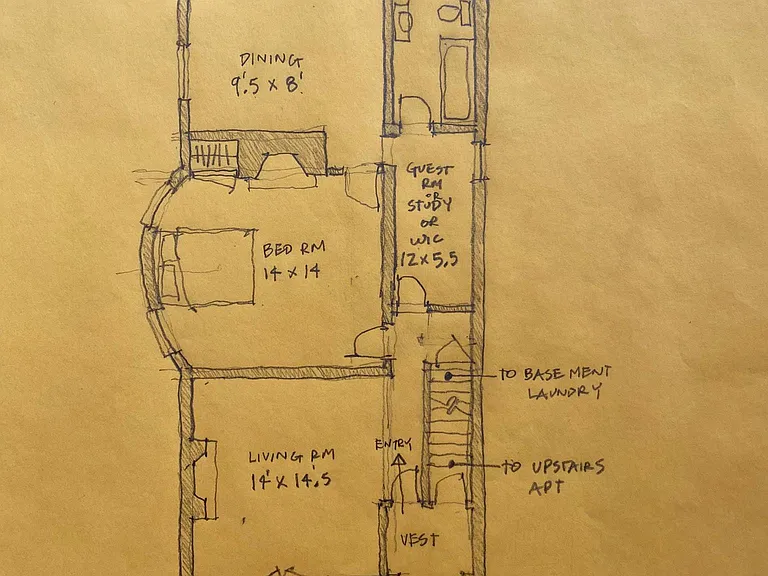 DINING
9'.5 X 8'
GUEST
RM
OR
STUDY
OR
WIC
12 X 5.5
BED RM
14 X 14
TO BASEMENT
LAUNDRY
ENTRY
LIVING RM
14' X 14'.5
TO UPSTAIRS
APT
VEST